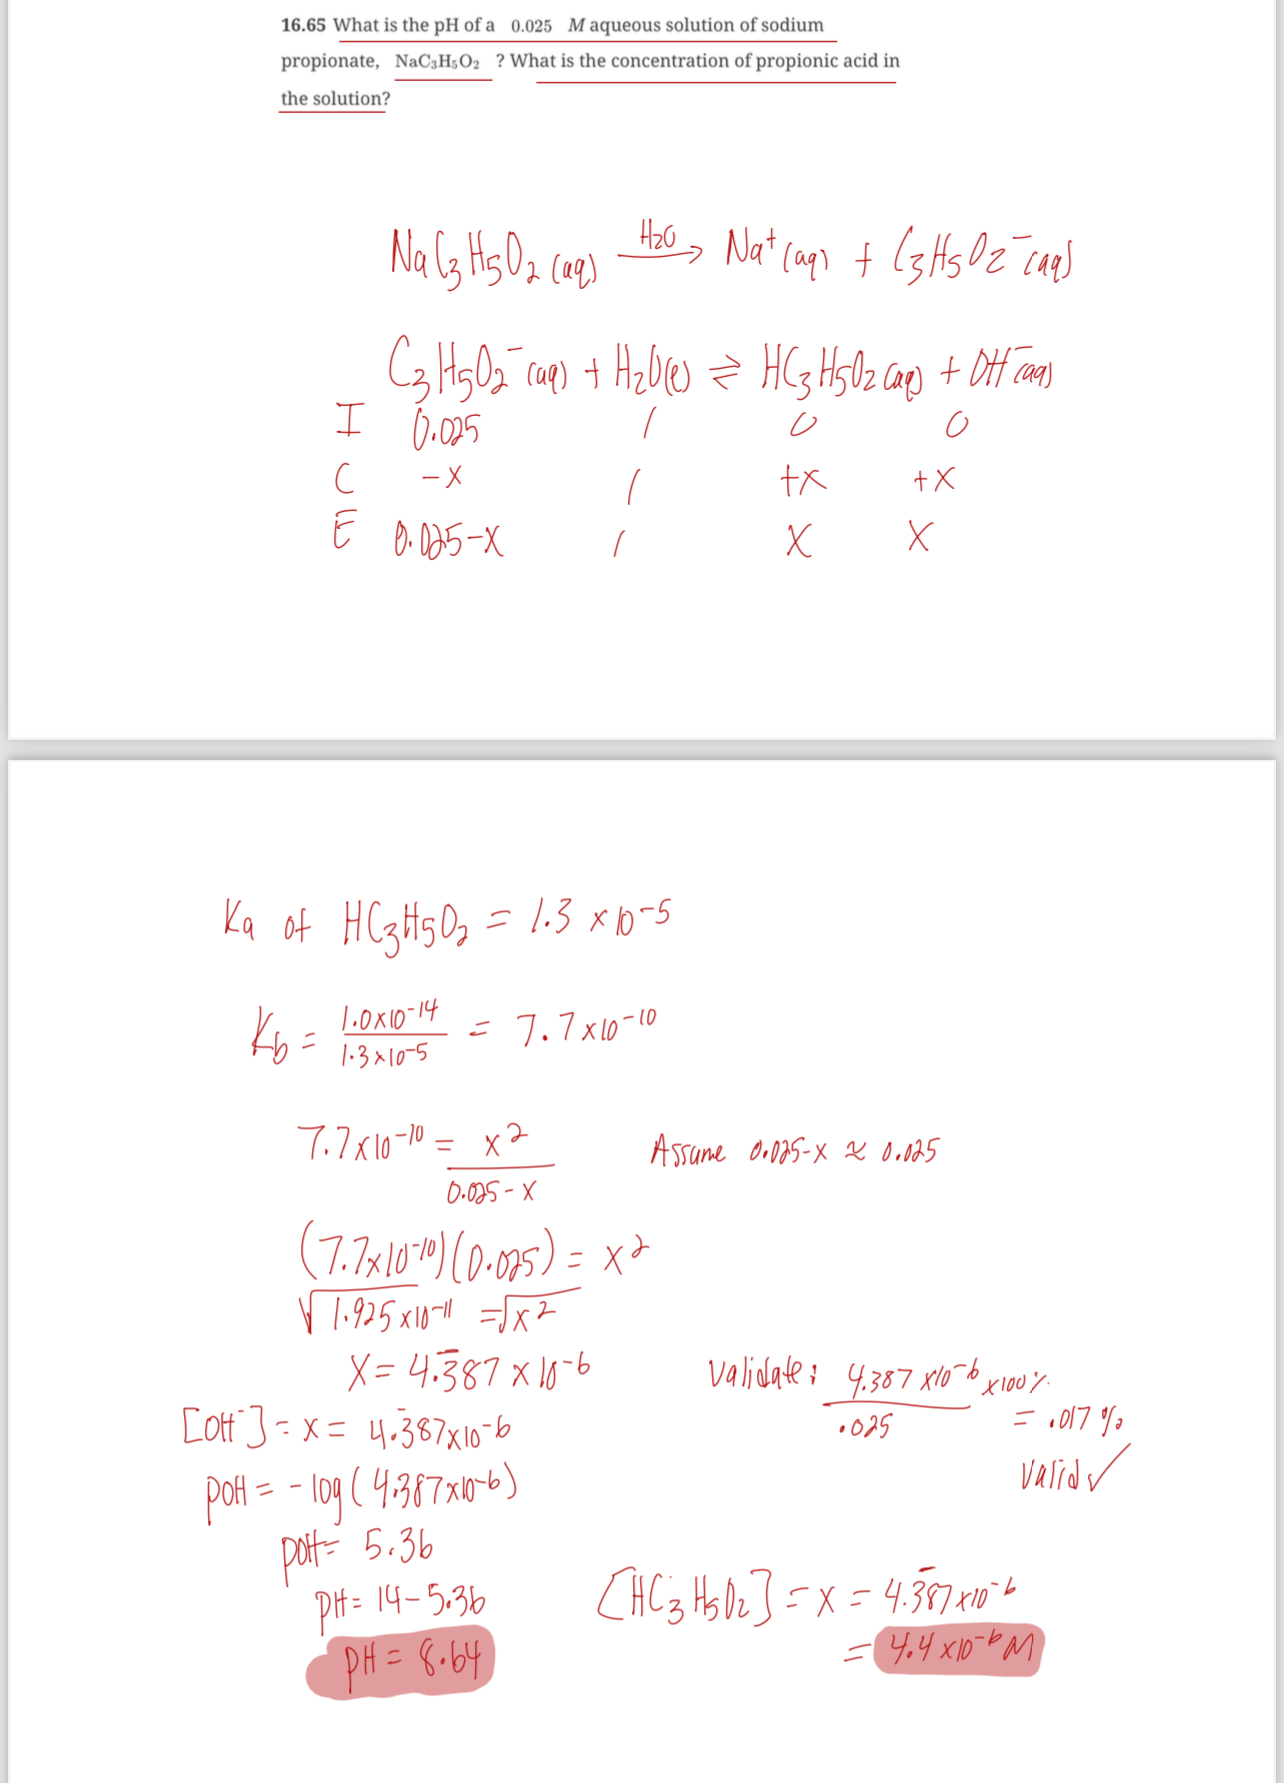 16.65 What is the pH of a 0.025 M aqueous solution of sodium
propionate, NaC₃H₅O₂ ? What is the concentration of propionic acid in
the solution?
NaC₃H₅O₂ (aq) —H₂O→ Na⁺ (aq) + C₃H₅O₂⁻ (aq)
C₃H₅O₂⁻ (aq) + H₂O(l) ⇌ HC₃H₅O₂ (aq) + OH⁻ (aq)
I 0.025 / 0 0
C -x / +x +x
E 0.025-x / x x
Ka of HC₃H₅O₂ = 1.3 x 10⁻⁵
Kb = 1.0x10⁻¹⁴ / 1.3x10⁻⁵ = 7.7x10⁻¹⁰
7.7x10⁻¹⁰ = x² / 0.025-x Assume 0.025-x ≈ 0.025
(7.7x10⁻¹⁰)(0.025) = x²
√1.925x10⁻¹¹ = √x²
x = 4.3̅87 x 10⁻⁶ Validate: 4.387 x10⁻⁶ / .025 x100% = .017%
[OH⁻] = x = 4.3̅87x10⁻⁶
Valid ✓
pOH = -log(4.387x10⁻⁶)
pOH = 5.36
pH = 14-5.36 [HC₃H₅O₂] = x = 4.3̅87x10⁻⁶
pH = 8.64 = 4.4 x10⁻⁶ M